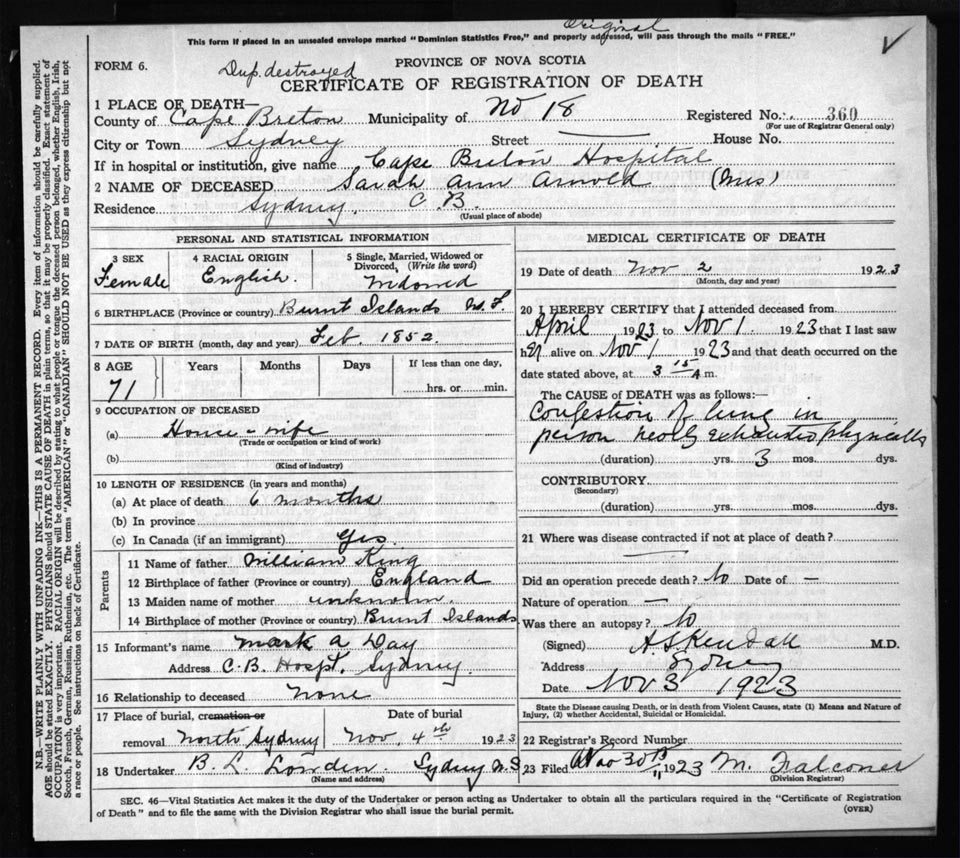 Original
This form if placed in an unsealed envelope marked "Dominion Statistics Free," and properly addressed, will pass through the mails "FREE."
FORM 6.
Dup. destroyed
PROVINCE OF NOVA SCOTIA
CERTIFICATE OF REGISTRATION OF DEATH
1 PLACE OF DEATH—
County of Cape Breton Municipality of No 18 Registered No. 360
(For use of Registrar General only)
City or Town Sydney Street House No.
If in hospital or institution, give name Cape Breton Hospital
2 NAME OF DECEASED Sarah Ann Arnold (Mrs)
Residence Sydney, C. B.
(Usual place of abode)
PERSONAL AND STATISTICAL INFORMATION
3 SEX 4 RACIAL ORIGIN 5 Single, Married, Widowed or
Divorced, (Write the word)
Female English. Widowed
6 BIRTHPLACE (Province or country) Burnt Islands N. F.
7 DATE OF BIRTH (month, day and year) Feb 1852.
8 AGE Years Months Days If less than one day,
71 hrs. or min.
9 OCCUPATION OF DECEASED
(a) House-wife
(Trade or occupation or kind of work)
(b)
(Kind of industry)
10 LENGTH OF RESIDENCE (in years and months)
(a) At place of death 6 months
(b) In province
(c) In Canada (if an immigrant) yes.
Parents
11 Name of father William King
12 Birthplace of father (Province or country) England
13 Maiden name of mother unknown.
14 Birthplace of mother (Province or country) Burnt Islands
15 Informant's name Mark A Day
Address C. B. Hospt. Sydney.
16 Relationship to deceased None
17 Place of burial, cremation or Date of burial
removal North Sydney Nov. 4th 1923
18 Undertaker B. L. Sydney N.S
(Name and address)
MEDICAL CERTIFICATE OF DEATH
19 Date of death Nov 2 1923
(Month, day and year)
20 I HEREBY CERTIFY that I attended deceased from
April 1923 to Nov 1 1923 that I last saw
her alive on Nov 1 1923 and that death occurred on the
date stated above, at 3 15 A m.
The CAUSE of DEATH was as follows:—
Congestion of lung in
person nearly exhausted physically
(duration) yrs. 3 mos. dys.
CONTRIBUTORY
(Secondary)
(duration) yrs. mos. dys.
21 Where was disease contracted if not at place of death?
Did an operation precede death? No Date of —
Nature of operation —
Was there an autopsy? No
(Signed) A S Kendall M.D.
Address Sydney
Date Nov 3 1923
State the Disease causing Death, or in death from Violent Causes, state (1) Means and Nature of
Injury, (2) whether Accidental, Suicidal or Homicidal.
22 Registrar's Record Number
23 Filed 1923 M. Falconer
(Division Registrar)
SEC. 46—Vital Statistics Act makes it the duty of the Undertaker or person acting as Undertaker to obtain all the particulars required in the "Certificate of Registration
of Death" and to file the same with the Division Registrar who shall issue the burial permit.
(OVER)
N.B.—WRITE PLAINLY WITH UNFADING INK—THIS IS A PERMANENT RECORD. Every item of information should be carefully supplied.
AGE should be stated EXACTLY. PHYSICIANS should STATE CAUSE OF DEATH in plain terms, so that it may be properly classified. Exact statement of
OCCUPATION is very important. RACIAL ORIGIN will be described by stating to what people or tongue the deceased person belonged, whether English, Irish,
Scotch, French, German, Russian, Ruthenian, etc. The terms "AMERICAN" or "CANADIAN" SHOULD NOT BE USED as they express citizenship but not
a race or people. See instructions on back of Certificate.